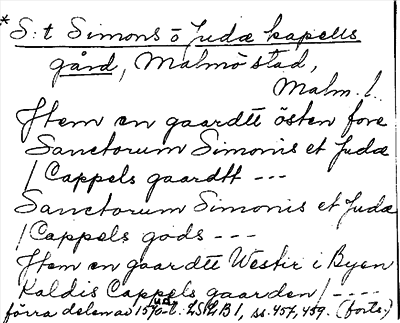 * S:t Simons o Judæ kapells
gård, Malmö stad,
Malm. l.
Jtem en gaardtt östen fore
Sanctorum Simonis et Judæ
/ Cappels gaardtt ---
Sanctorum Simonis et Judæ
/ Cappels gods ---
Jtem en gaardtt Westir i Byen
Kaldis Cappels gaarden / ----
förra delen av 1570-t. LSLB 1, ss. 457, 459. (forts.)